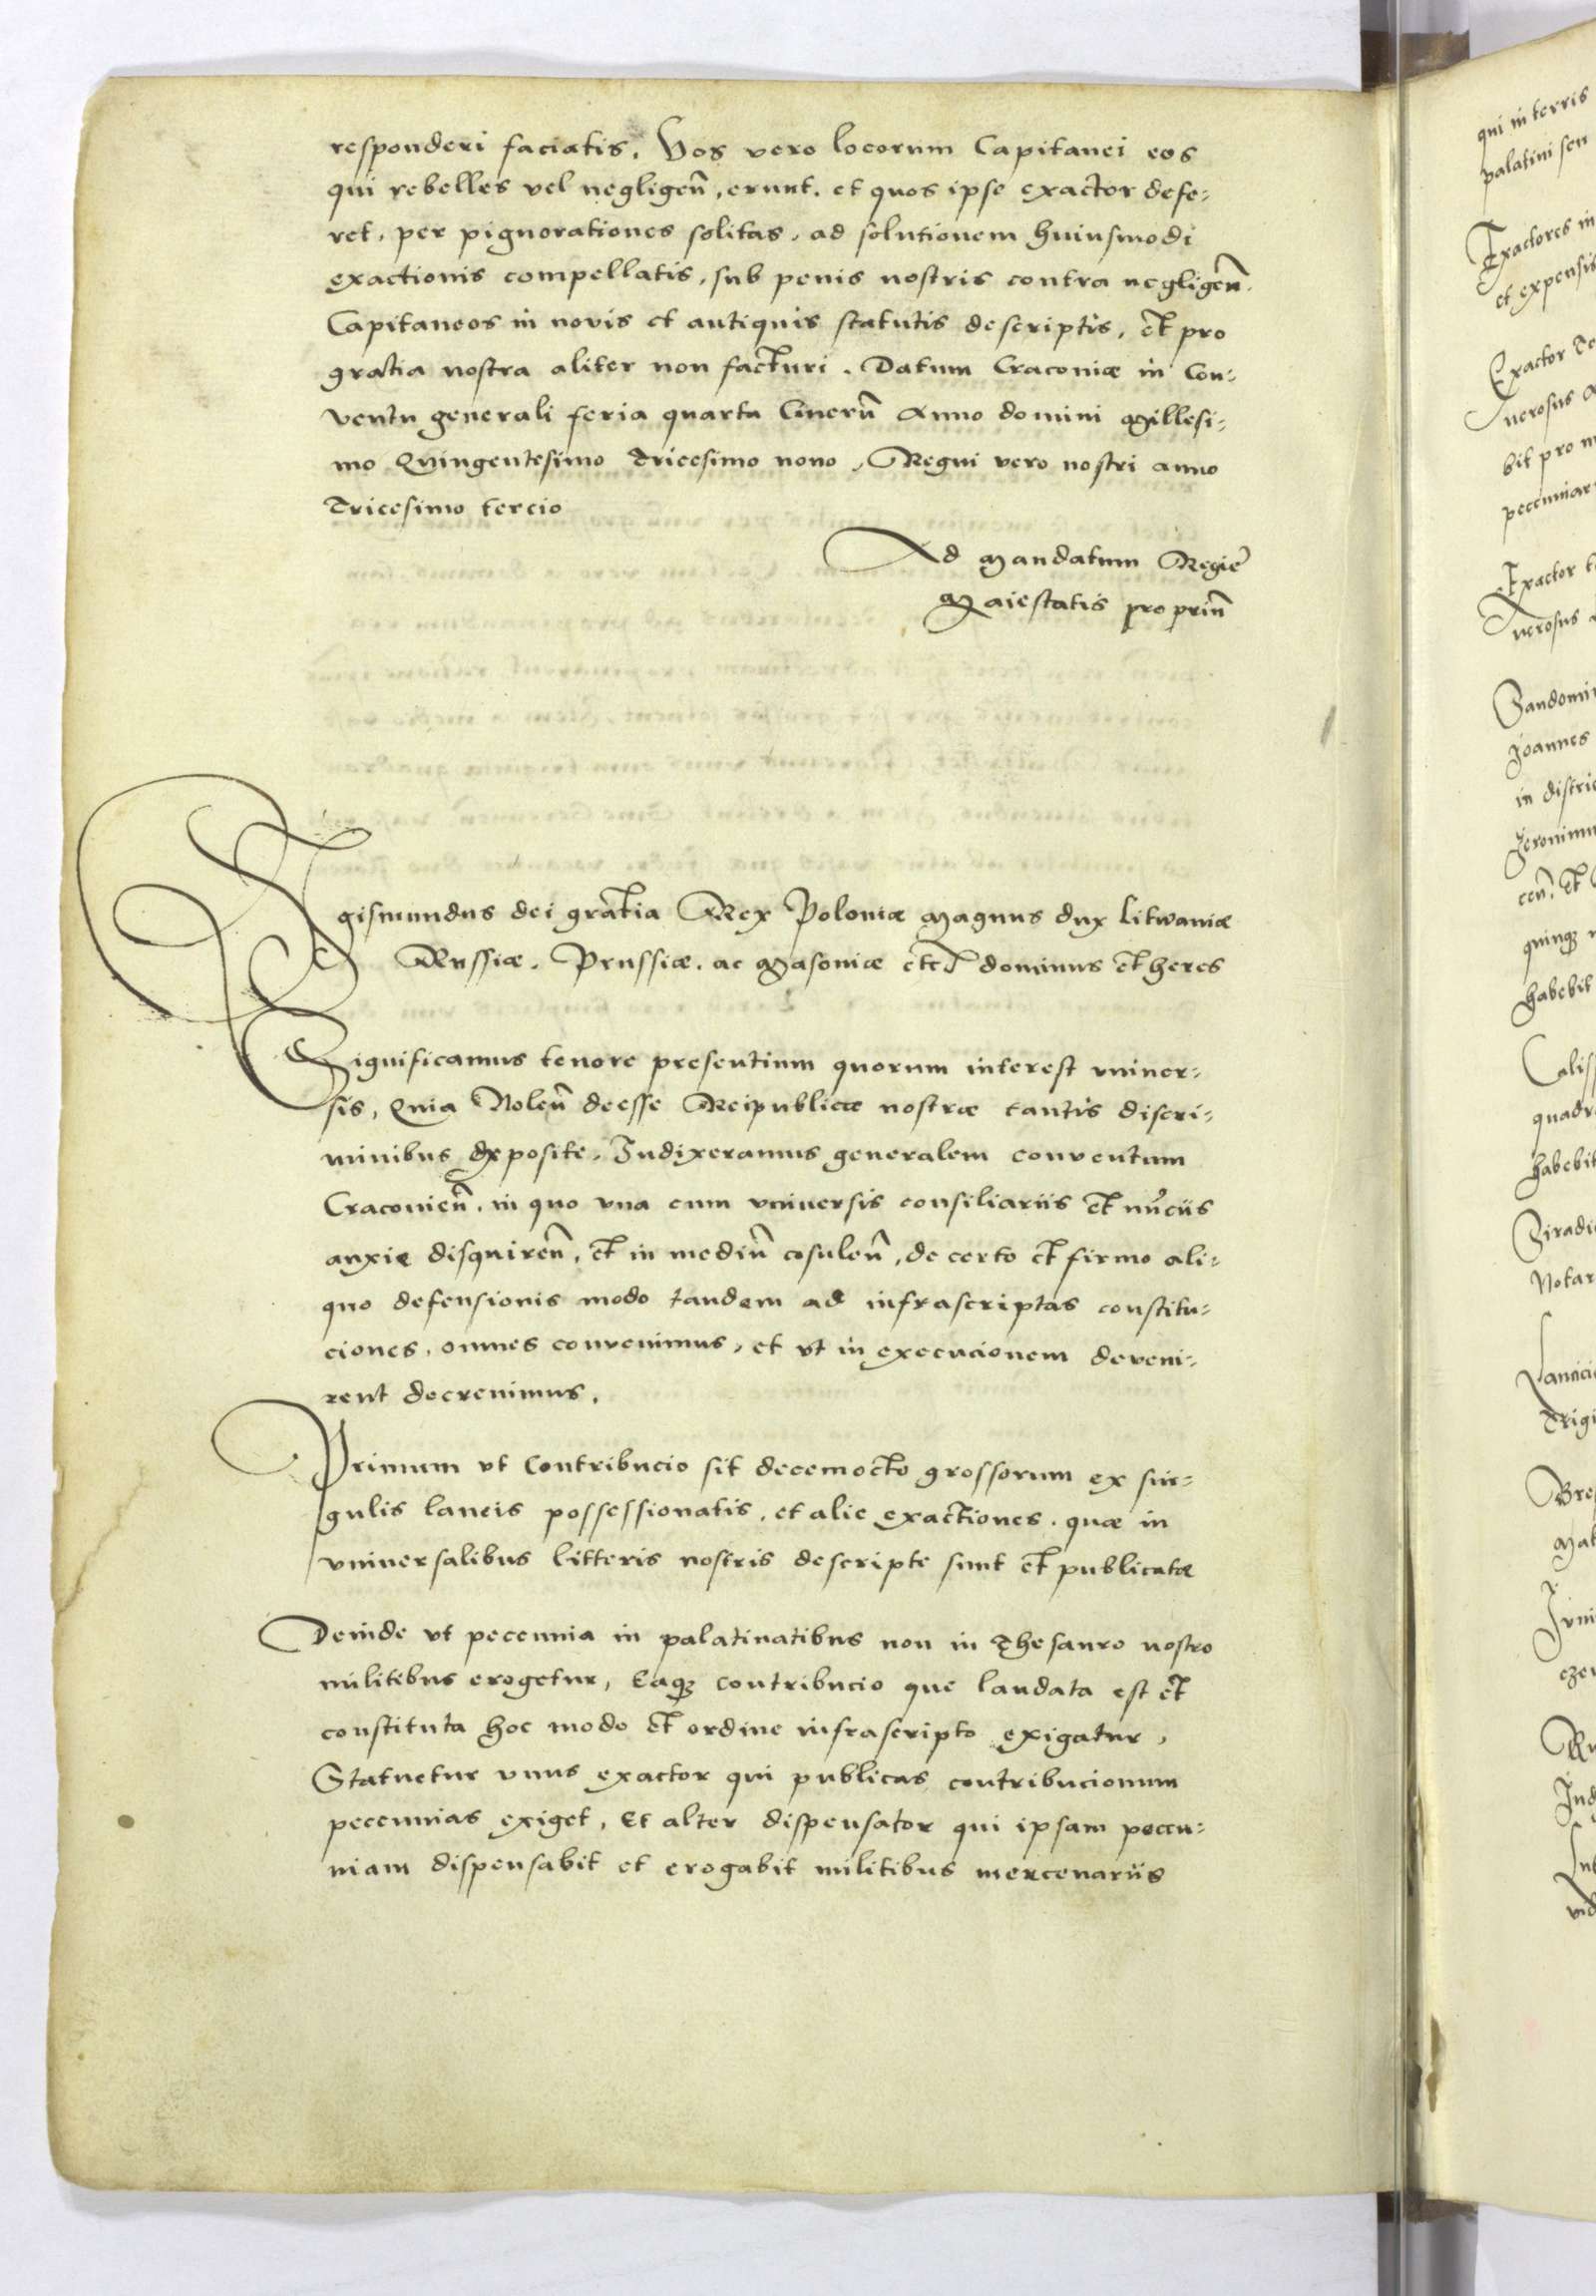 responderi faciatis. Vos vero locorum Capitanei eos
qui rebelles vel negligen̄, erunt. et quos ipse exactor defe-
ret, per pignorationes solitas, ad solutionem huiusmodi
exactionis compellatis, sub penis nostris contra negligen̄.
Capitaneos in novis et antiquis statutis descriptis, et pro
gratia nostra aliter non facturi. Datum Cracoviæ in Con-
ventu generali feria quarta Cinerū Anno domini Millesi-
mo Quingentesimo Tricesimo nono, Regni vero nostri anno
Tricesimo tercio
Ad Mandatum Regie
Maiestatis propriū
Sigismundus dei gratia Rex Poloniæ Magnus dux Litwaniæ
Russiæ. Prussiæ. ac Masoviæ etc dominus et heres
Significamus tenore presentium quorum interest univer-
sis, Quia Nolen̄ deesse Reipublicæ nostræ tantis discri-
minibus exposite. Indixeramus generalem conventum
Cracovien̄. in quo una cum universis consiliariis et nūciis
anxie disquiren̄, et in mediū cōsulen̄, de certo et firmo ali-
quo defensionis modo tandem ad infrascriptas constitu-
ciones, omnes convenimus, et ut in execucionem deveni-
rent decrevimus.
Primum ut Contribucio sit decemocto grossorum ex sin-
gulis laneis possessionatis, et alie exactiones. quæ in
universalibus litteris nostris descripte sunt et publicatæ
Deinde ut peccunia in palatinatibus non in Thesauro nostro
militibus erogetur, Eaqȝ contribucio que laudata est et
constituta hoc modo et ordine infrascripto exigatur,
Statuetur unus exactor qui publicas contribucionum
peccunias exiget, Et alter dispensator qui ipsam peccu-
niam dispensabit et erogabit militibus mercenariis
qui in terris
palatini seu
Exactores in
et expensis
Exactor
nerosus
bit pro
pecuniar
Exactor
nerosus
Sandomi
Joannes
in distri
Jeronimu
cen̄. et
quinqȝ
habebit
Calis
quadr
habebit
Siradi
Notar
Lancici
Trigi
Bres